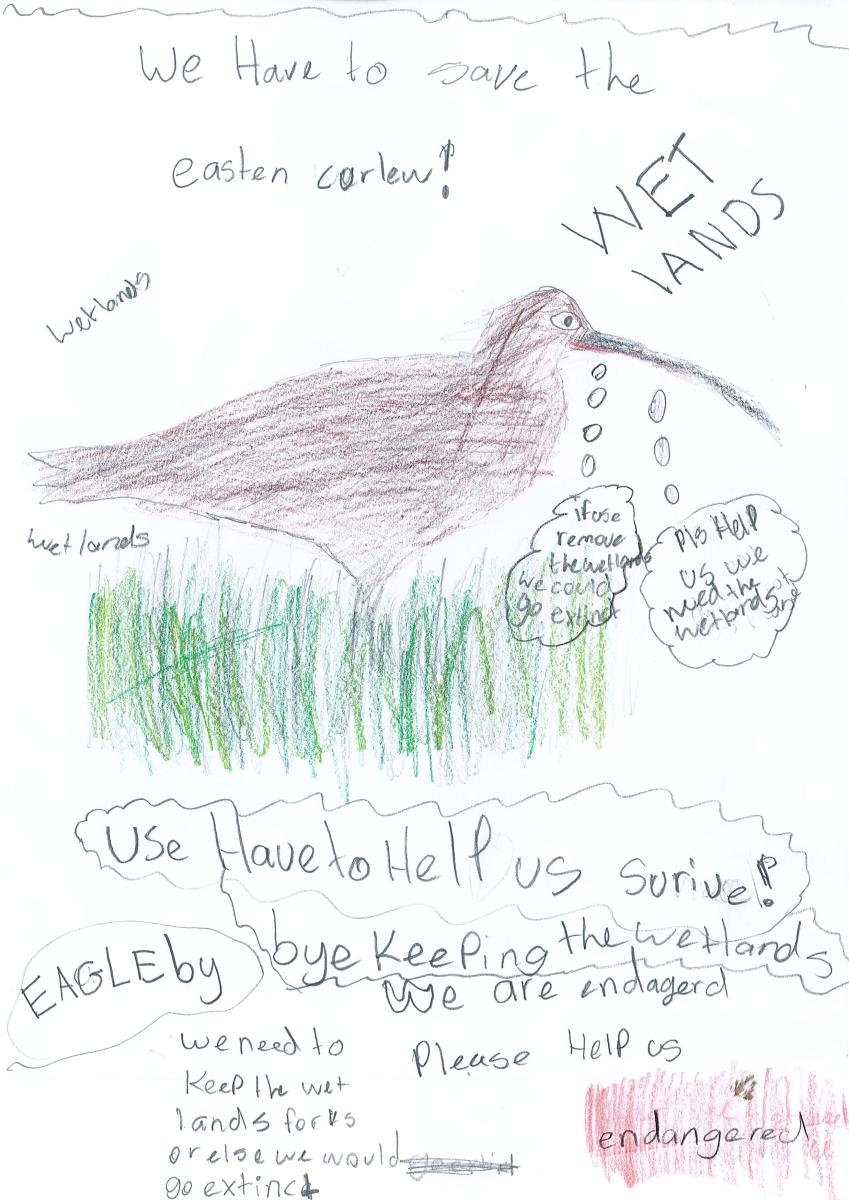 We Have to save the
easten corlew!
WET
LANDS
wetlands
wetlands
if use
remove
the wetlands
we could
go extinct
Pls Help
us we
need the
wetlands
Use Have to Help us surive!
bye keeping the wetlands
EAGLEby
We are endagerd
we need to
keep the wet
lands for us
or else we would
go extinct
Please Help us
endangered